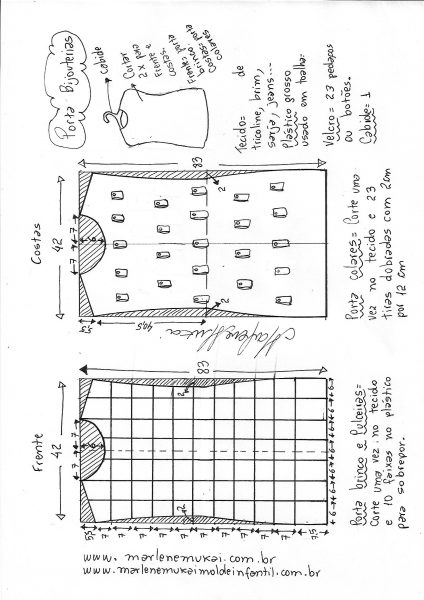 Porta Bijouterias
Cabide
Cortar
2 x para
Frente e
costas.
Frente: porta
brinco
Costas: porta
colares
Tecido= de
tricoline, brim,
sarja, jeans...
Plástico grosso
usado em toalha.
Velcro= 23 pedaços
ou botões.
Cabide= 1
Costas
83
42
7
6
7
2
2
5,5
40,5
Porta colares= Corte uma
vez no tecido e 23
tiras dobradas com 2cm
por 12 cm
Marlene Mukai
Frente
83
42
7
6
7
2
2
5,5
7
7
7
7
7
7
7
7
7
7,5
6
6
6
6
6
6
6
Porta brinco e Pulseiras=
Corte uma vez no tecido
e 10 faixas no plástico
para sobrepor.
www.marlenemukai.com.br
www.marlenemukaimoldeinfantil.com.br